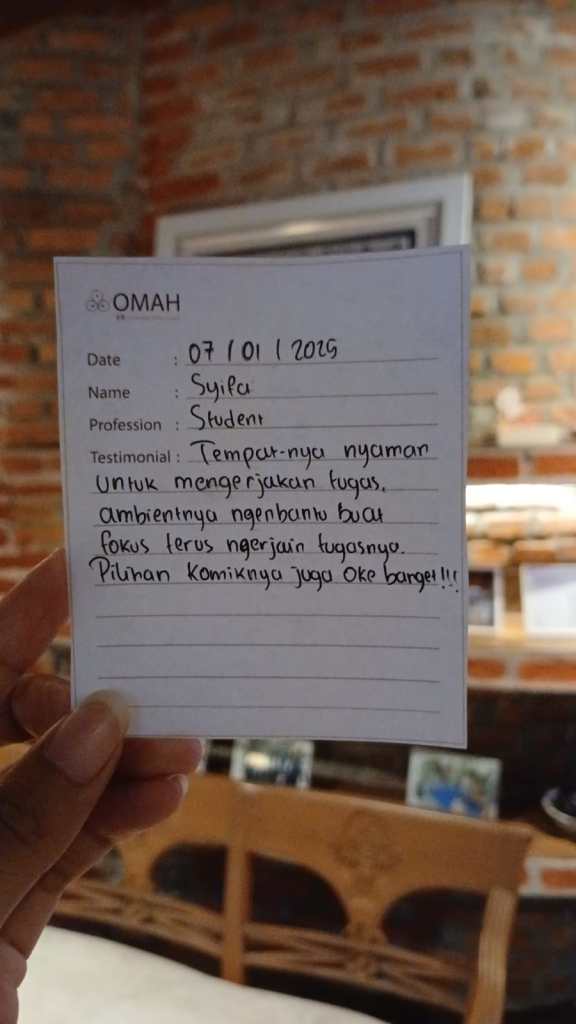 OMAH
Date : 07 / 01 / 2025
Name : Syifa
Profession : Student
Testimonial : Tempat-nya nyaman
untuk mengerjakan tugas,
ambientnya ngenbantu buat
fokus terus ngerjain tugasnya.
Pilihan komiknya juga oke banget!!!